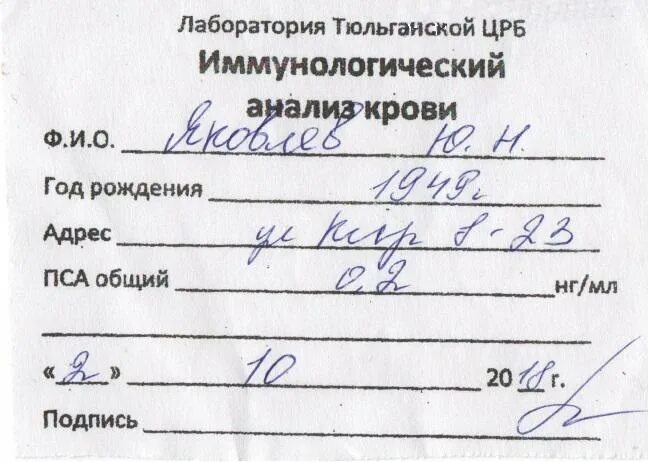 Лаборатория Тюльганской ЦРБ
Иммунологический
анализ крови
Ф.И.О. Яковлев Ю. Н.
Год рождения 1949г
Адрес ул 8-23
ПСА общий 0,2 нг/мл
«2» 10 2018 г.
Подпись